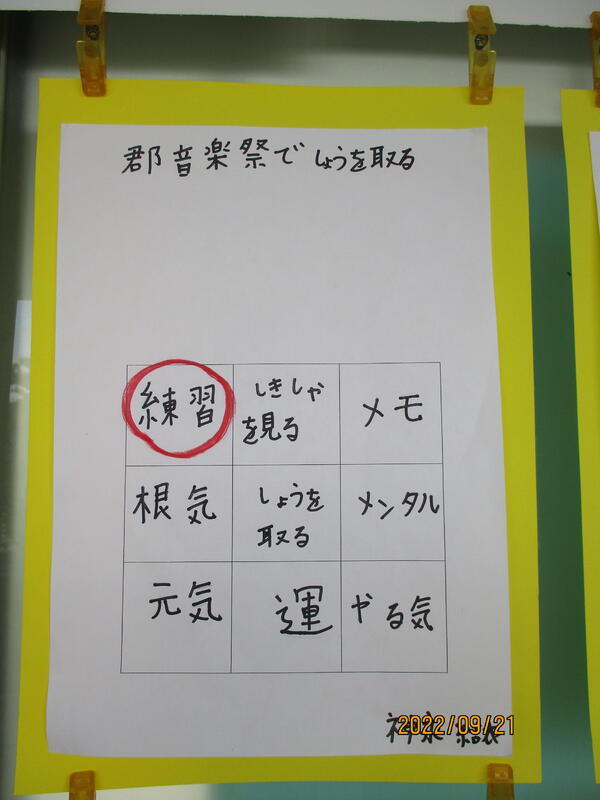 郡音楽祭でしょうを取る
練習
しきしゃ
を見る
メモ
根気
しょうを
取る
メンタル
元気
運
やる気
2022/09/21